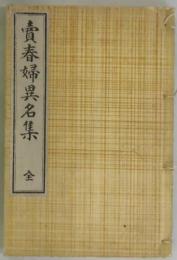 賣春婦異名集 全